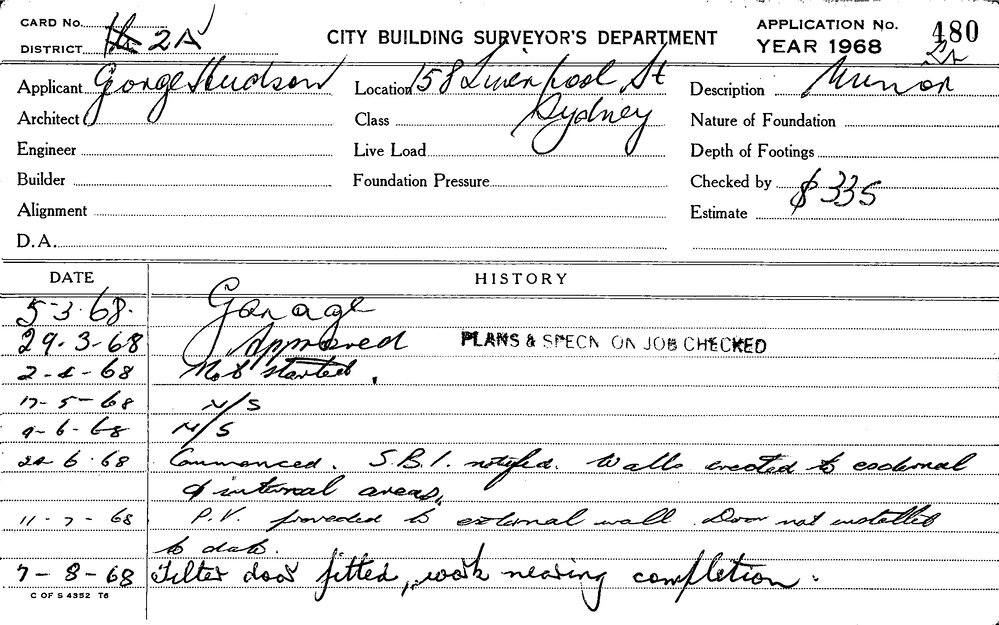 CARD No.
DISTRICT 2A
CITY BUILDING SURVEYOR'S DEPARTMENT
APPLICATION No. 480
YEAR 1968
Applicant George Hudson
Location 158 Liverpool St
Sydney
Description Minor
Architect
Class
Nature of Foundation
Engineer
Live Load
Depth of Footings
Builder
Foundation Pressure
Checked by
Alignment
Estimate $335
D.A.
DATE HISTORY
5-3-68. Garage
29-3-68 Approved PLANS & SPECN ON JOB CHECKED
2-4-68 Not started.
17-5-68 N/S
9-6-68 N/S
24-6-68 Commenced. S.B.I. notified. Walls erected to external
& internal areas,
11-7-68 P.V. provided to external wall. Door not installed
to date.
7-8-68 Tilter door fitted, work nearing completion.
C OF S 4352 T6